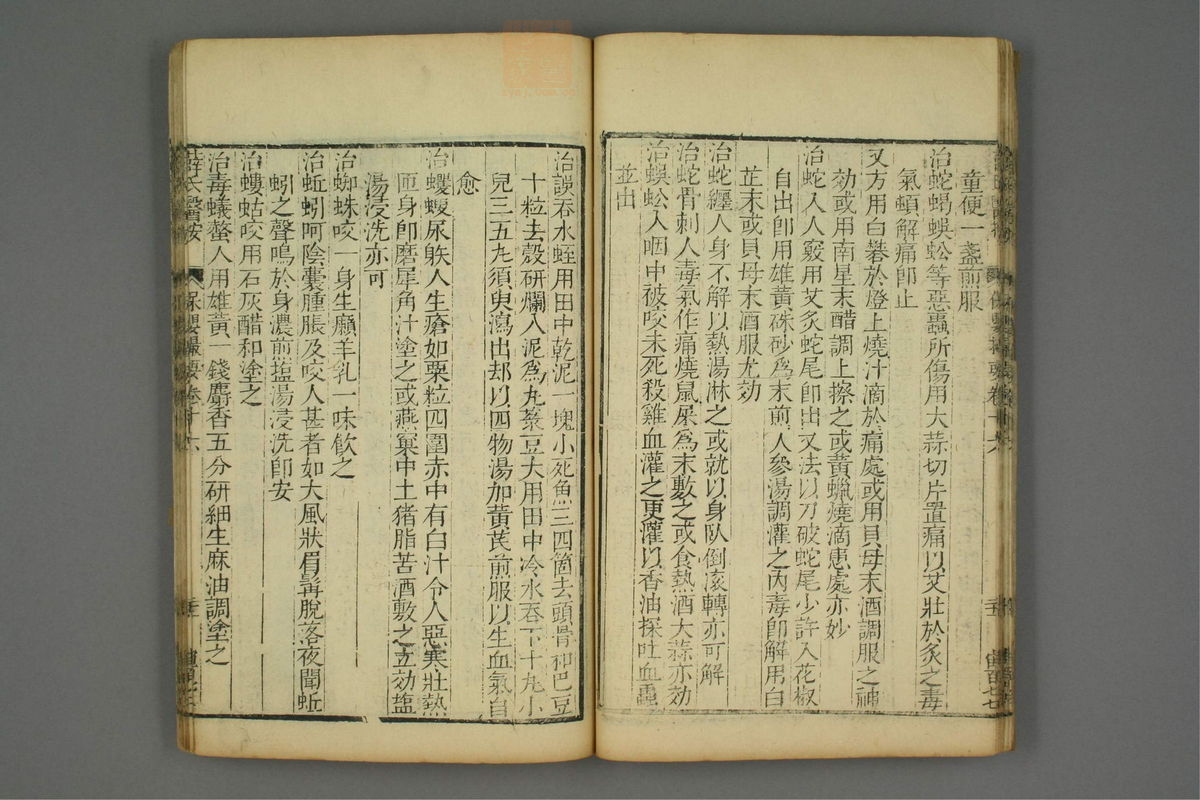 童便一盞煎服
治蛇蝎蜈蚣等惡蟲所傷用大蒜切片置痛以艾壯於灸之毒
氣頓解痛卽止
又方用白礬於燈上燒汁滴於痛處或用貝母末酒調服之神
効或用南星末醋調上擦之或黃蠟燒滴患處亦妙
治蛇入人竅用艾灸蛇尾卽出又法以刀破蛇尾少許入花椒
自出卽用雄黃硃砂爲末煎人參湯調灌之內毒卽解用白
芷末或貝母末酒服尤効
治蛇纏人身不解以熱湯淋之或就以身臥倒滾轉亦可解
治蛇骨刺人毒氣作痛燒鼠屎爲末敷之或食熱酒大蒜亦効
治蜈蚣入咽中被咬未死殺雞血灌之更灌以香油探吐血蟲
並出
治誤吞水蛭用田中乾泥一塊小死魚三四箇去頭骨和巴豆
十粒去殼研爛入泥爲丸菉豆大用田中冷水吞下十丸小
兒三五丸須臾瀉出却以四物湯加黃芪煎服以生血氣自
愈
治蠼螋尿躰人生瘡如粟粒四圍赤中有白汁令人惡寒壯熱
匝身卽磨犀角汁塗之或燕窠中土猪脂苦酒敷之立効塩
湯浸洗亦可
治蜘蛛咬一身生癩羊乳一味飲之
治蚯蚓呵陰囊腫脹及咬人甚者如大風狀眉髯脫落夜聞蚯
蚓之聲鳴於身濃煎塩湯浸洗卽安
治螻蛄咬用石灰醋和塗之
治毒蟻螫人用雄黃一錢麝香五分研細生麻油調塗之
薛氏醫按 保嬰撮要卷十六